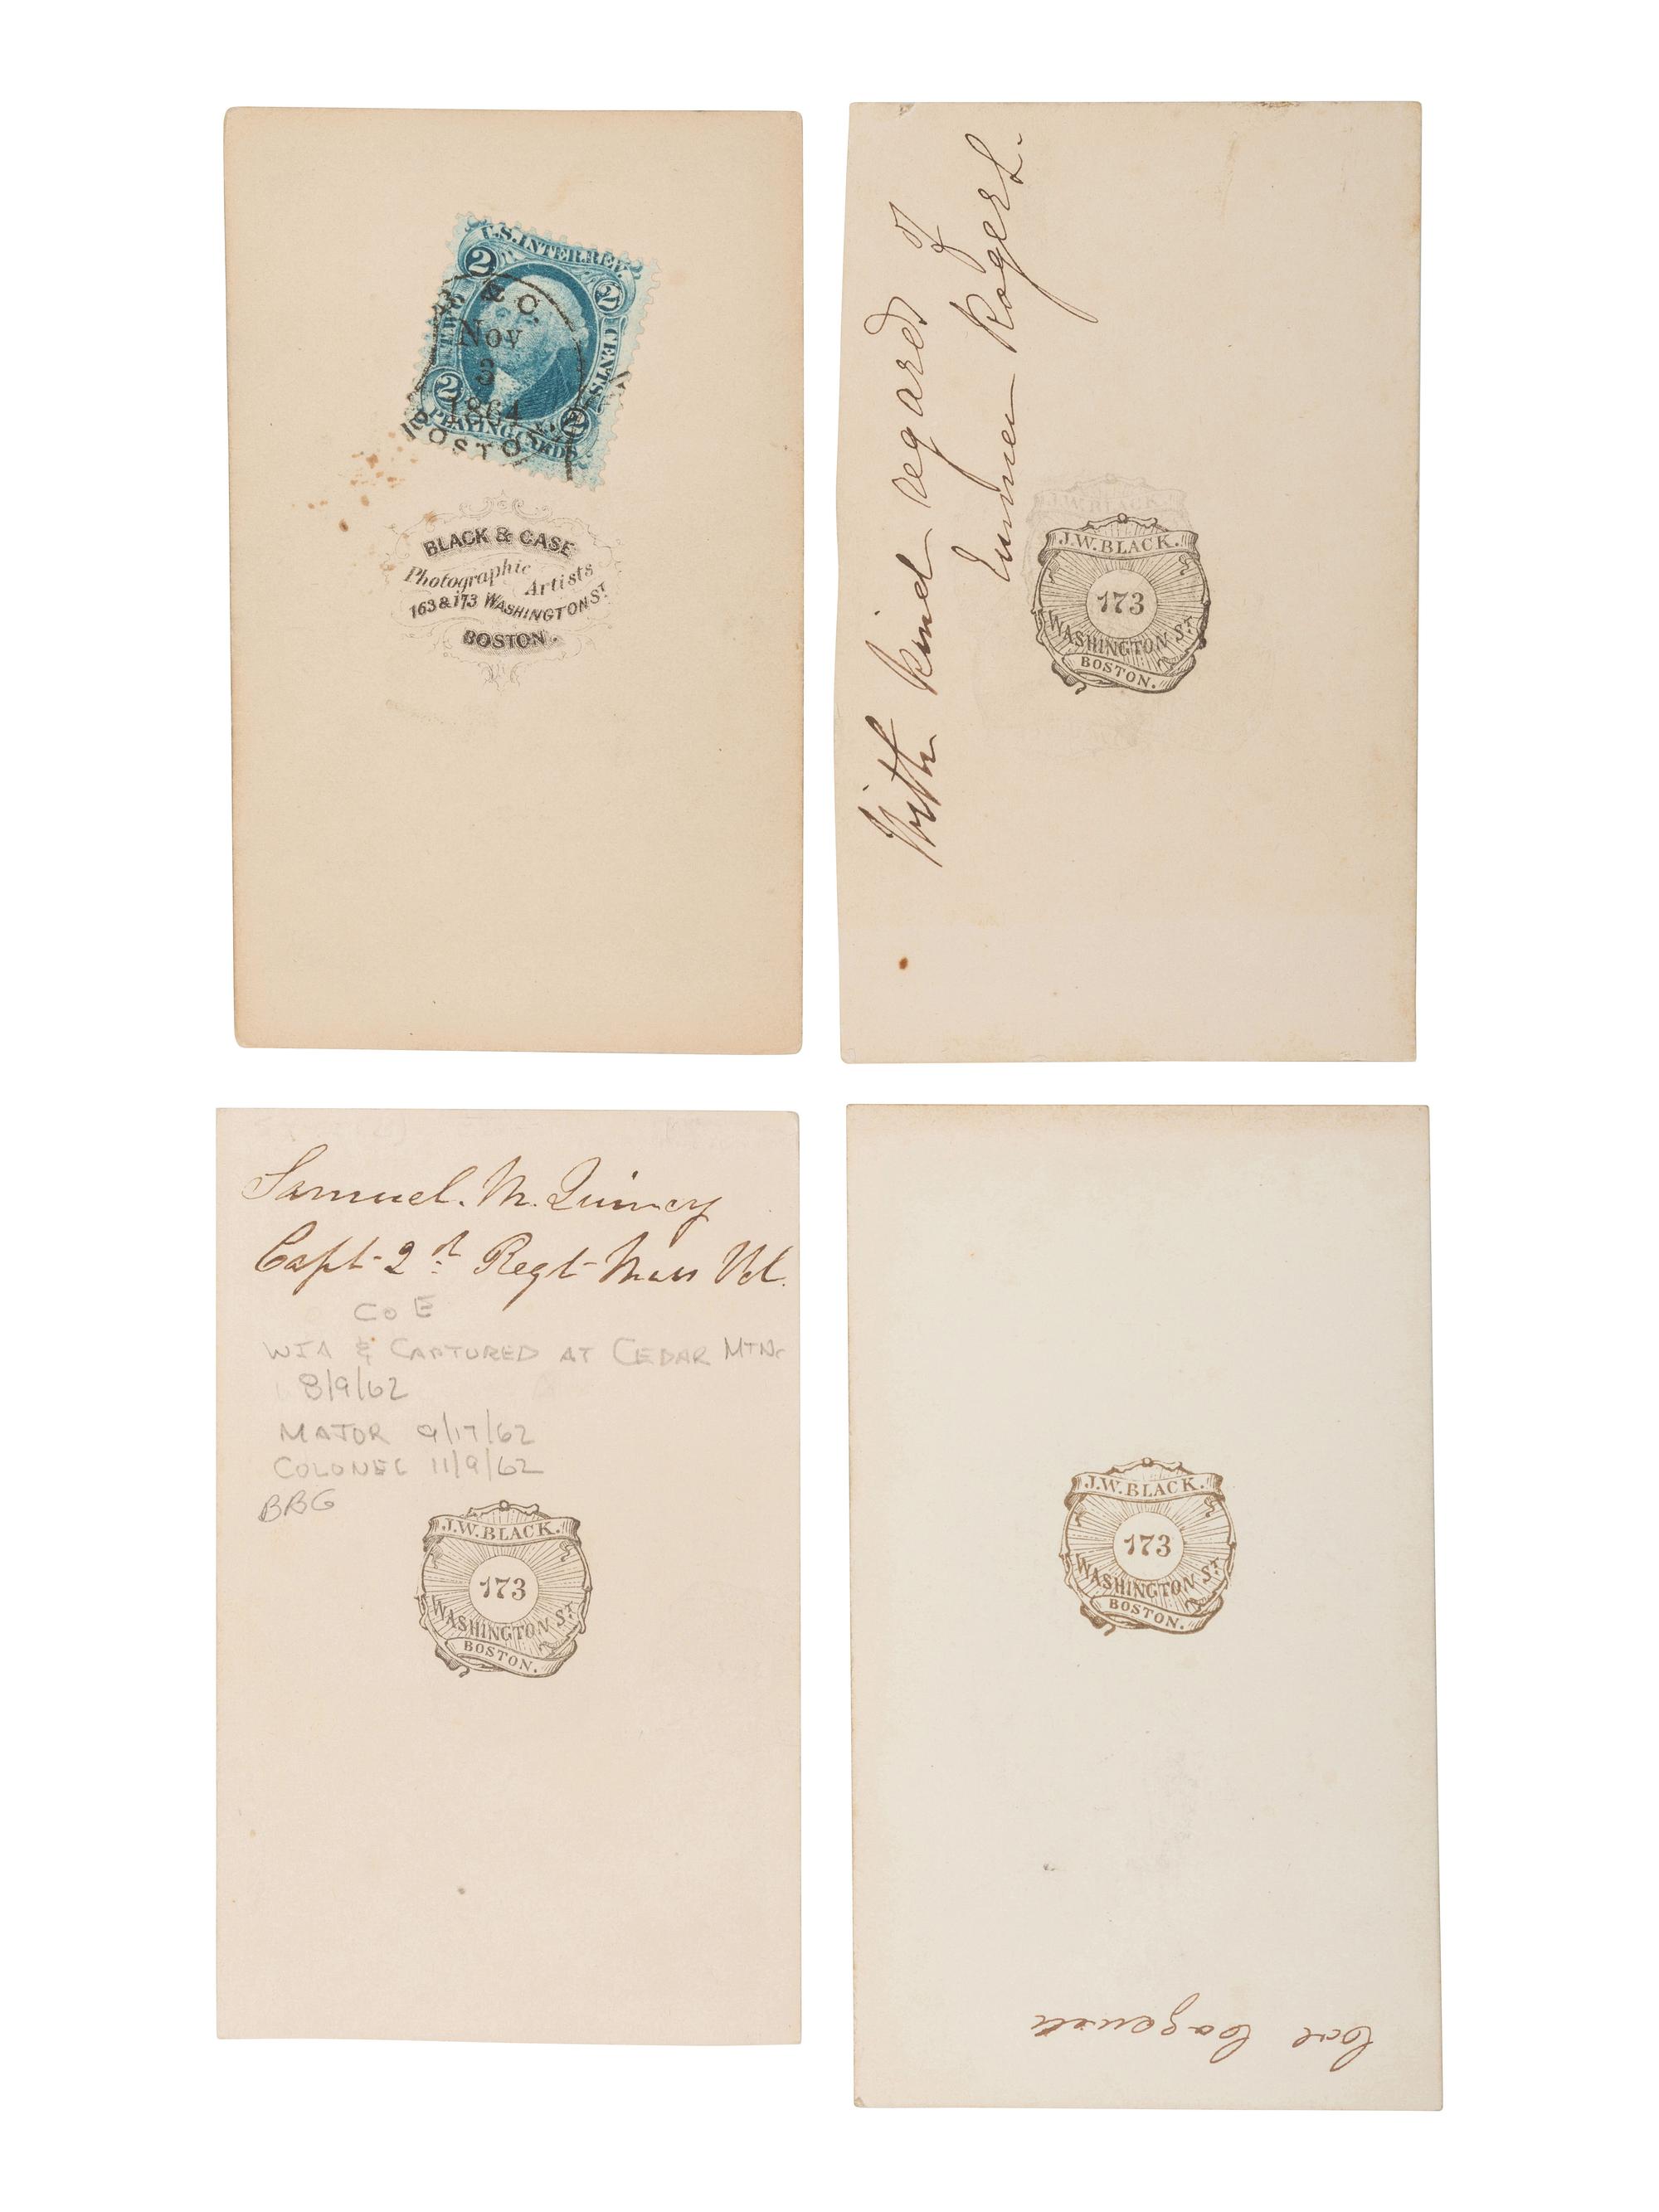 U.S. INTER. REV.
2 2
CENTS
2 2
PLAYING CARDS
& C.
Nov
3
1864
BOSTON
BLACK & CASE
Photographic Artists
163 & 173 WASHINGTON ST.
BOSTON.
With kind regards of
Rogers.
J.W. BLACK.
173
WASHINGTON ST.
BOSTON.
Samuel. M. Quincy
Capt 2d Regt Mass Vol.
CO E
WIA & CAPTURED AT CEDAR MTN.
8/9/62
MAJOR 9/17/62
COLONEL 11/9/62
BBG
J.W. BLACK.
173
WASHINGTON ST.
BOSTON.
J.W. BLACK.
173
WASHINGTON ST.
BOSTON.
Col